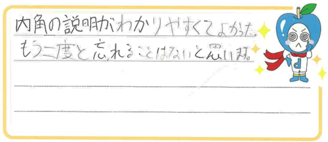 内角の説明がわかりやすくてよかった。
もう二度と忘れることはないと思います。